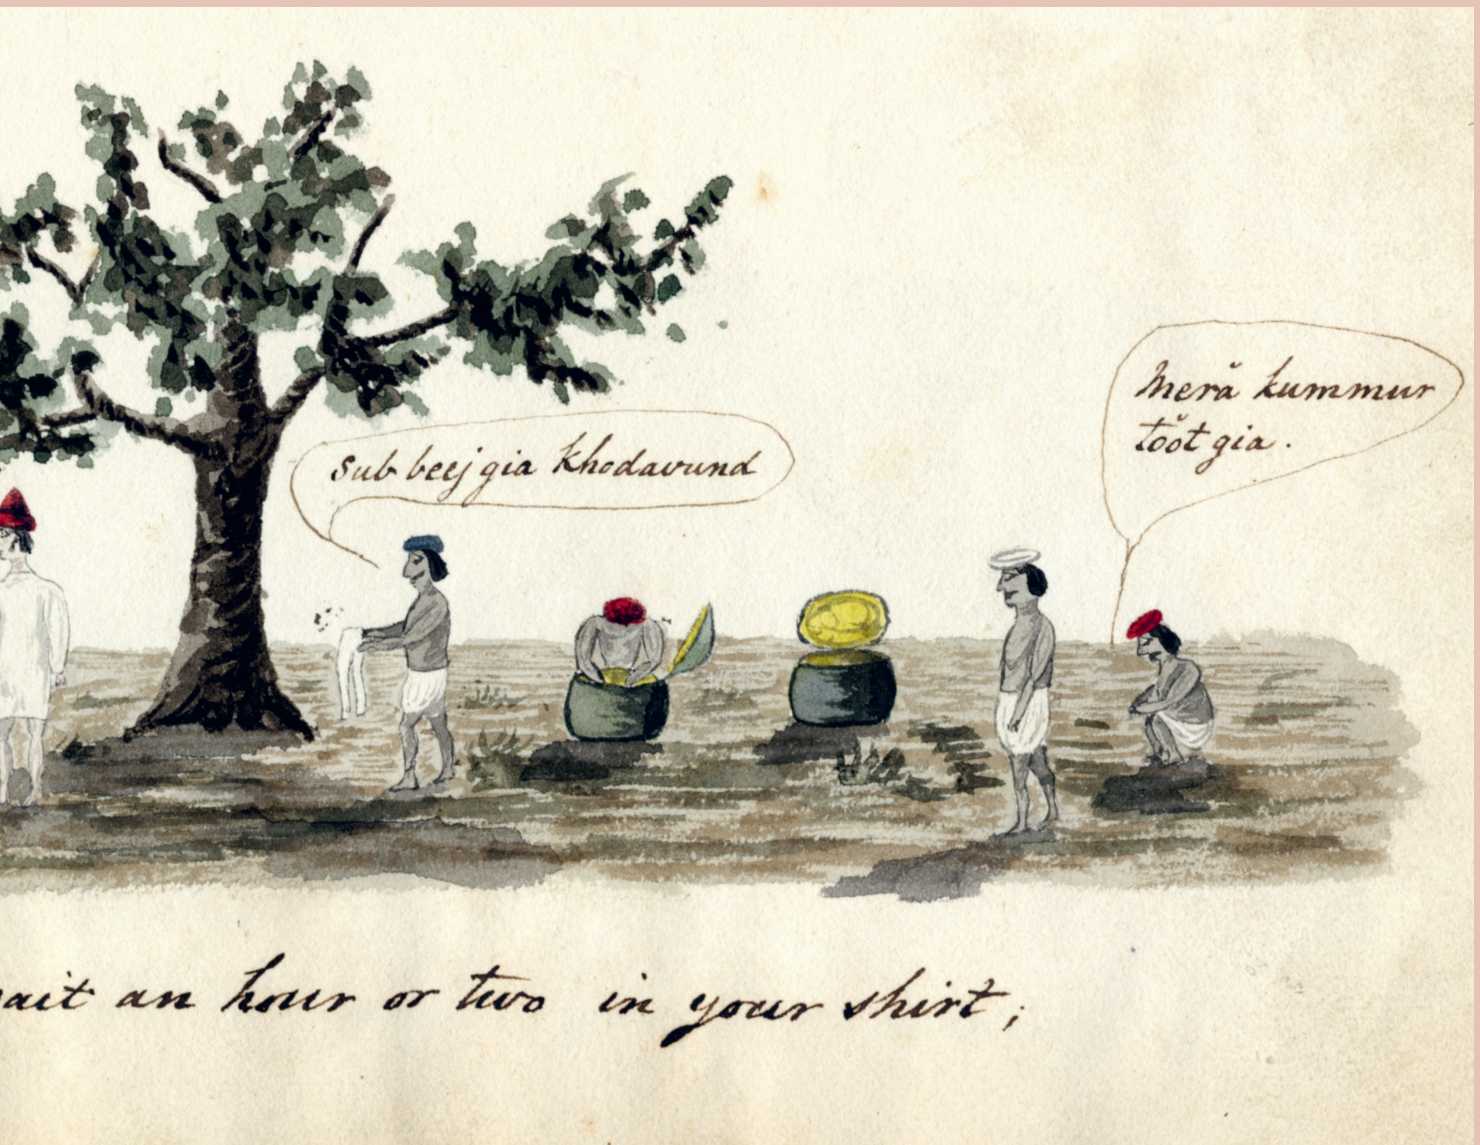 Sub beej gia Khodavund
Merǎ kummur
tǒǒt gia.
an hour or two in your shirt;